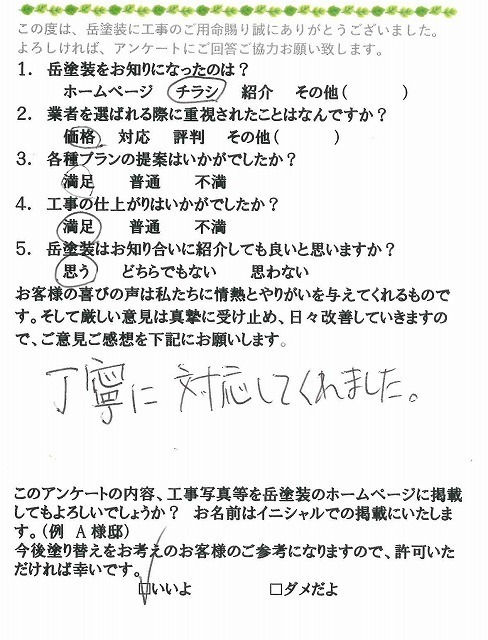 この度は、岳塗装に工事のご用命賜り誠にありがとうございました。
よろしければ、アンケートにご回答ご協力お願い致します。
1. 岳塗装をお知りになったのは?
ホームページ チラシ 紹介 その他( )
2. 業者を選ばれる際に重視されたことはなんですか?
価格 対応 評判 その他( )
3. 各種プランの提案はいかがでしたか?
満足 普通 不満
4. 工事の仕上がりはいかがでしたか?
満足 普通 不満
5. 岳塗装はお知り合いに紹介しても良いと思いますか?
思う どちらでもない 思わない
お客様の喜びの声は私たちに情熱とやりがいを与えてくれるもので
す。そして厳しい意見は真摯に受け止め、日々改善していきますの
で、ご意見ご感想を下記にお願いします。
丁寧に対応してくれました。
このアンケートの内容、工事写真等を岳塗装のホームページに掲載
してもよろしいでしょうか? お名前はイニシャルでの掲載にいたしま
す。(例 A様邸)
今後塗り替えをお考えのお客様のご参考になりますので、許可いた
だければ幸いです。
□いいよ □ダメだよ